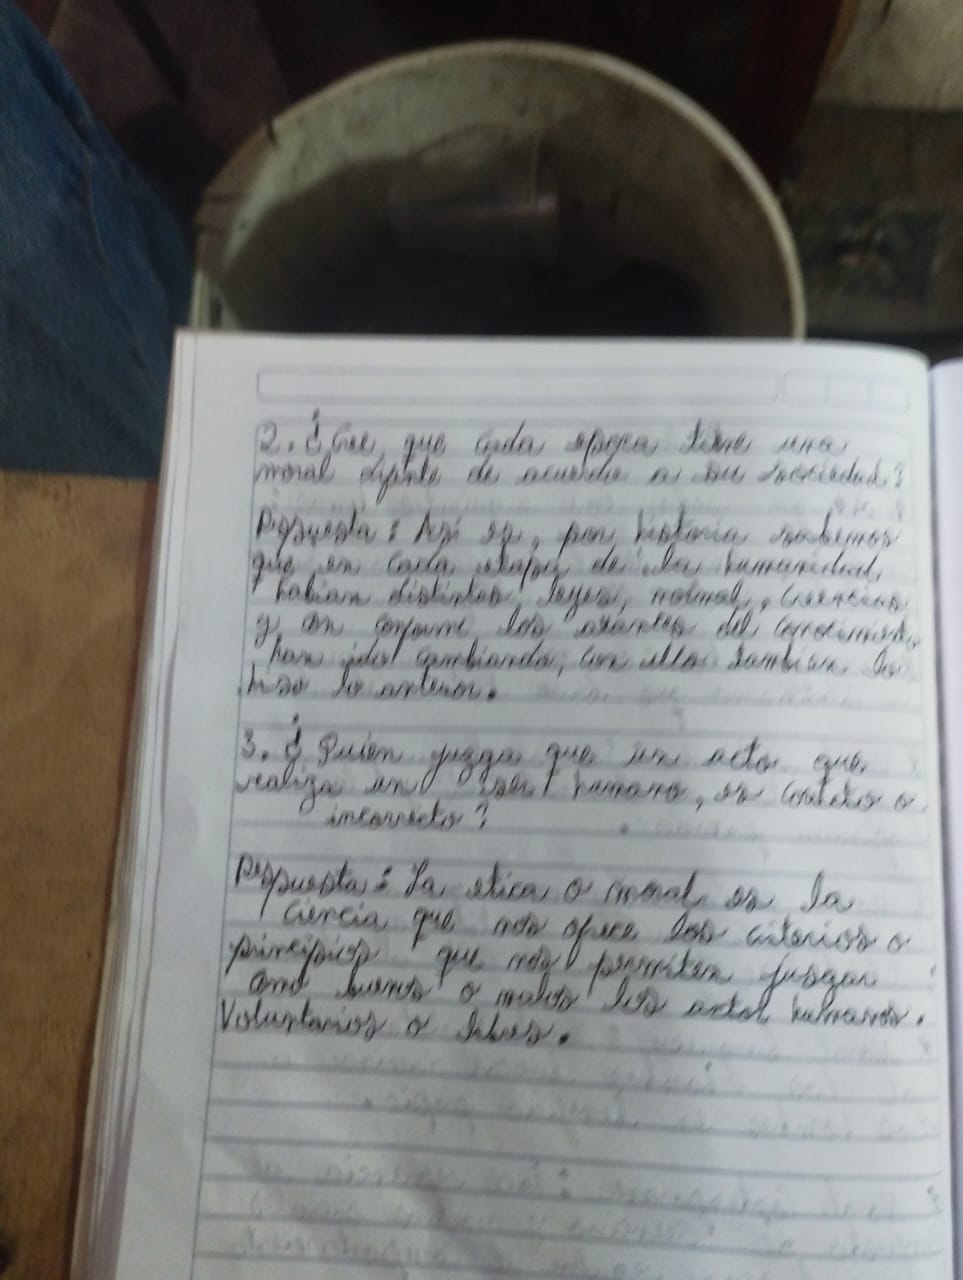 2. ¿Cree que cada epoca tiene una
moral difnte de acuerdo a su sociedad?
Respuesta: Así es, por historia sabemos
que en cada etapa de la humanidad,
habian distintos, leyes, creencias
y con conforme los avances del conocimiento
han ido cambiando, con ello tambien lo
hizo lo anterior.
3. ¿Quien juzga que un acto que
realiza un ser humano, es correcto o
incorrecto?
Respuesta: La etica o moral es la
ciencia que nos ofrece los criterios o
principios que nos permiten juzgar
como buenos o malos los actos humanos.
Voluntarios o libres.